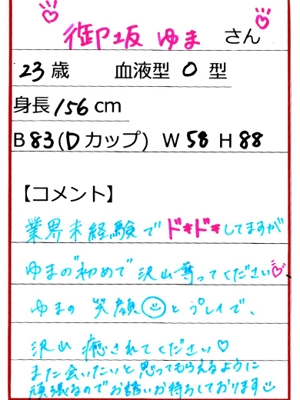 御坂 ゆま さん
23歳 血液型 O 型
身長 156cm
B 83(Dカップ) W 58 H 88
【コメント】
業界未経験でドキドキしてますが
ゆまの"初めて"沢山奪ってください♡
ゆまの 笑顔☺とプレイで、
沢山 癒されてください♡
また会いたいと思ってもらえるように
頑張るのでお誘いお待ちしております☺